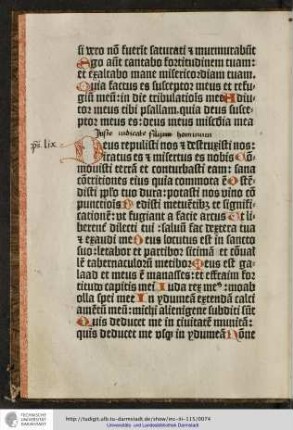 si vero nō fuerīt saturati & murmurabūt
Ego aūt cantabo fortitudinem tuam:
et exaltabo mane misericordiam tuam.
Quia factus es susceptor meus et refu-
giū meū: in die tribulatiōis mee Adiu-
tor meus tibi psallam. quia deus susce-
ptor meus es: deus meus misc̄dia mea
ps̄ lix.
Deus repulisti nos & destruxisti nos:
iratus es & misertus es nobis Cō-
mouisti terrā et conturbasti eam: sana
cōtritiones eius quia commota ē Ostē-
disti pplo tuo dura: potasti nos vino cō-
punctiōis Dedisti metuētibȝ te signifi-
cationē: vt fugiant a facie arcus Et li-
berent̄ dilecti tui: saluū fac dextera tua
& exaudi me Deus locutus est in sancto
suo: letabor et partibor sicimā et cōual-
lē tabernaculorū metibor Meus est ga-
laad et meus ē manasses: et effraim for-
titudo capitis mei Iuda rex meꝰ: moab
olla spei mee In ydumeā extendā calci
amētū meū: michi alienigene subditi sūt
Quis deducet me in ciuitatē munitā:
quis deducet me vsqȝ in ydumeā Nōne
TECHNISCHE
UNIVERSITÄT
DARMSTADT
http://tudigit.ulb.tu-darmstadt.de/show/inc-iii-115/0074
Universitäts- und Landesbibliothek Darmstadt